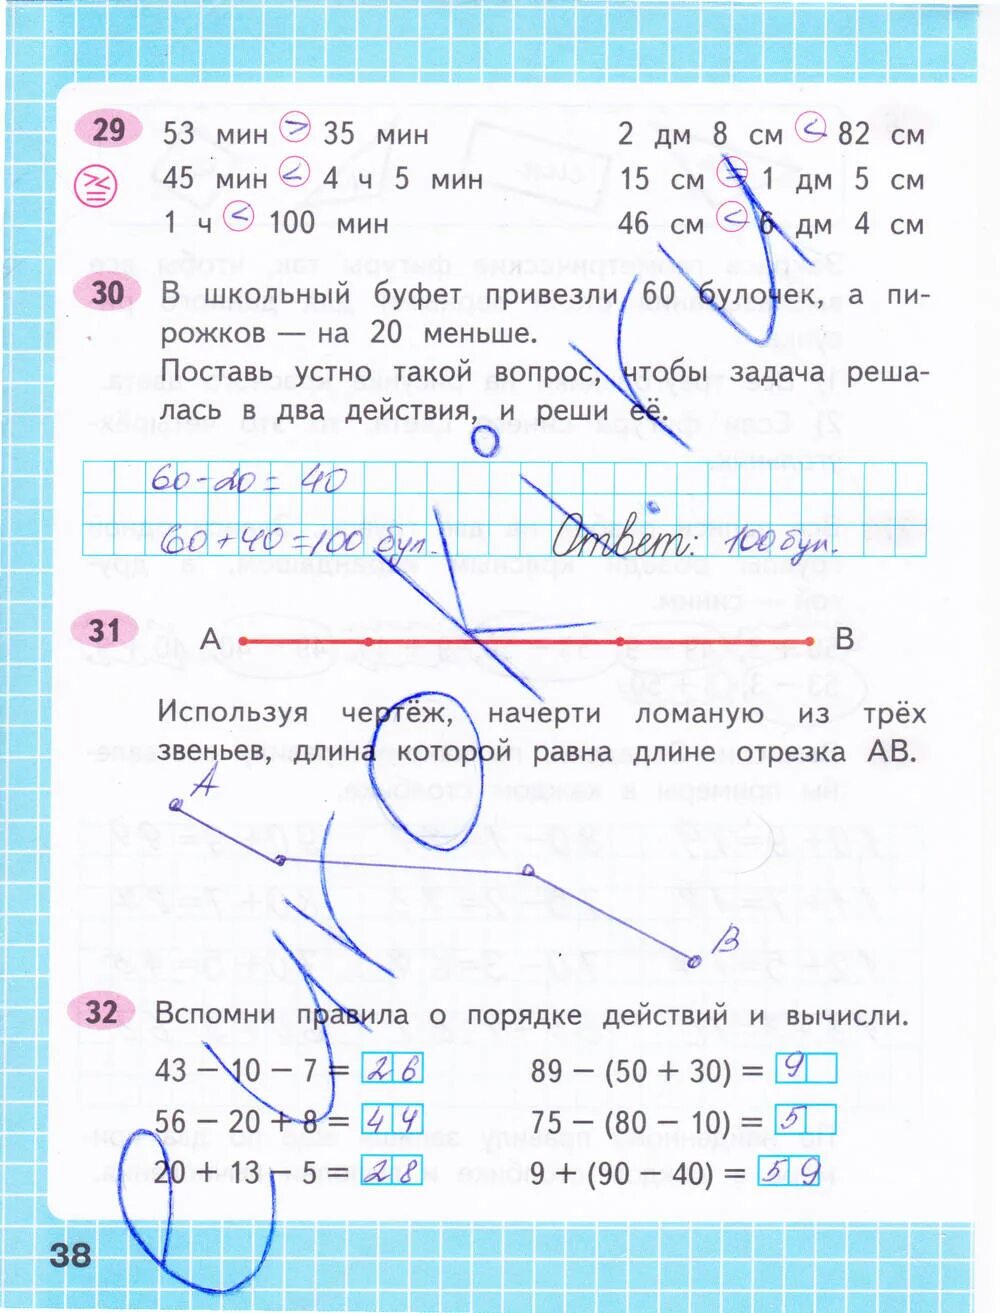 29 53 мин > 35 мин 2 дм 8 см < 82 см
45 мин < 4 ч 5 мин 15 см = 1 дм 5 см
1 ч < 100 мин 46 см < 6 дм 4 см
30 В школьный буфет привезли 60 булочек, а пи-
рожков — на 20 меньше.
Поставь устно такой вопрос, чтобы задача реша-
лась в два действия, и реши её.
60-20= 40
60+40=100 бул. Ответ: 100 бул.
31 А В
Используя чертёж, начерти ломаную из трёх
звеньев, длина которой равна длине отрезка АВ.
А
В
32 Вспомни правила о порядке действий и вычисли.
43 – 10 – 7 = 26 89 – (50 + 30) = 9
56 – 20 + 8 = 44 75 – (80 – 10) = 5
20 + 13 – 5 = 28 9 + (90 – 40) = 59
38